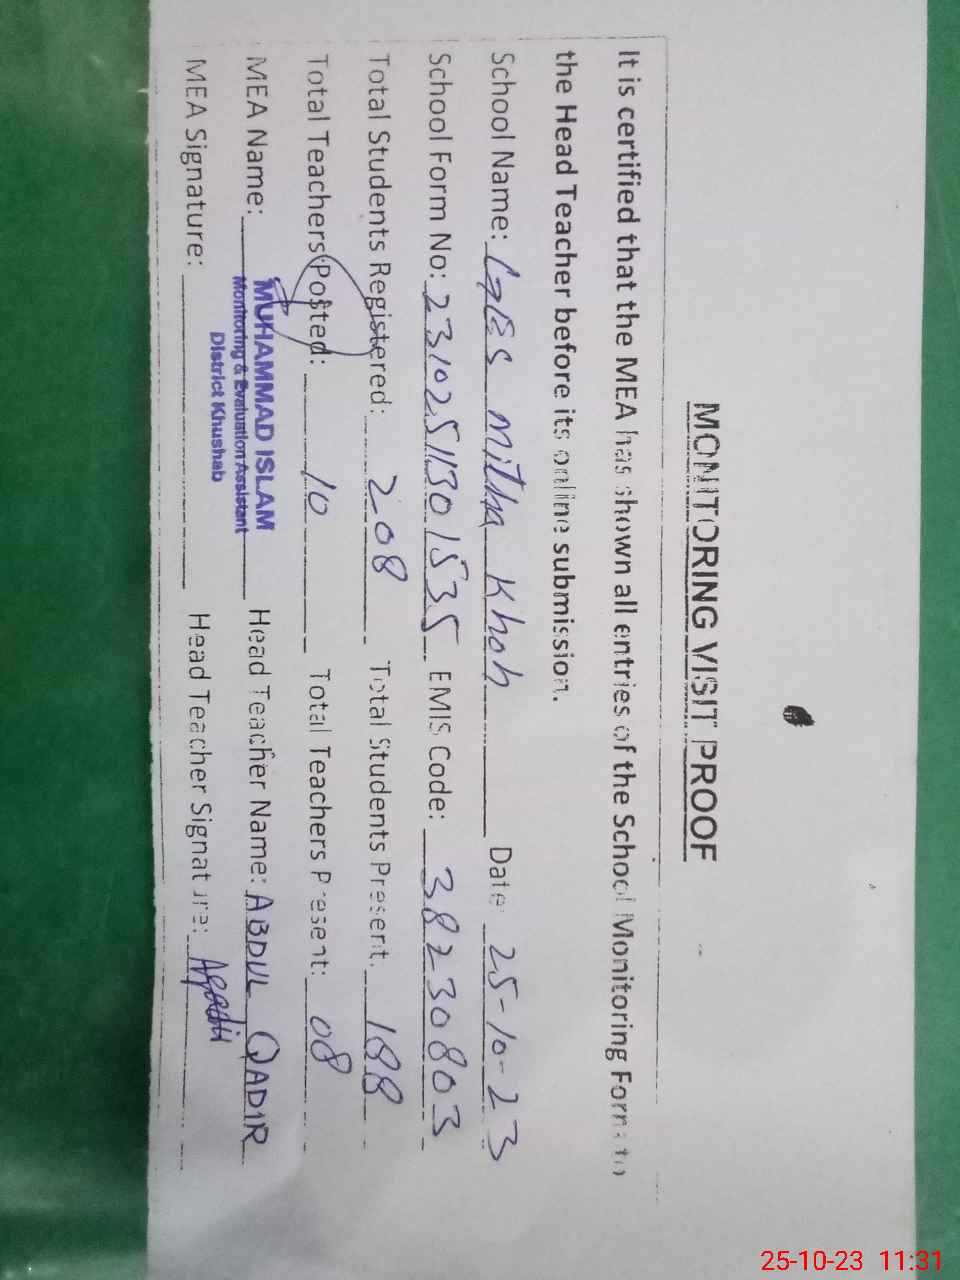 MONITORING VISIT PROOF
It is certified that the MEA has shown all entries of the School Monitoring Form to
the Head Teacher before its online submission.
School Name: GES Mitha Khoh Date: 25-10-23
School Form No: 23102511301535 EMIS Code: 38230803
Total Students Registered: 208 Total Students Present: 188
Total Teachers Posted: 10 Total Teachers Present: 08
MEA Name: MUHAMMAD ISLAM Head Teacher Name: ABDUL QADIR
Monitoring & Evaluation Assistant
District Khushab
MEA Signature: Head Teacher Signature: Aqadir
25-10-23 11:31